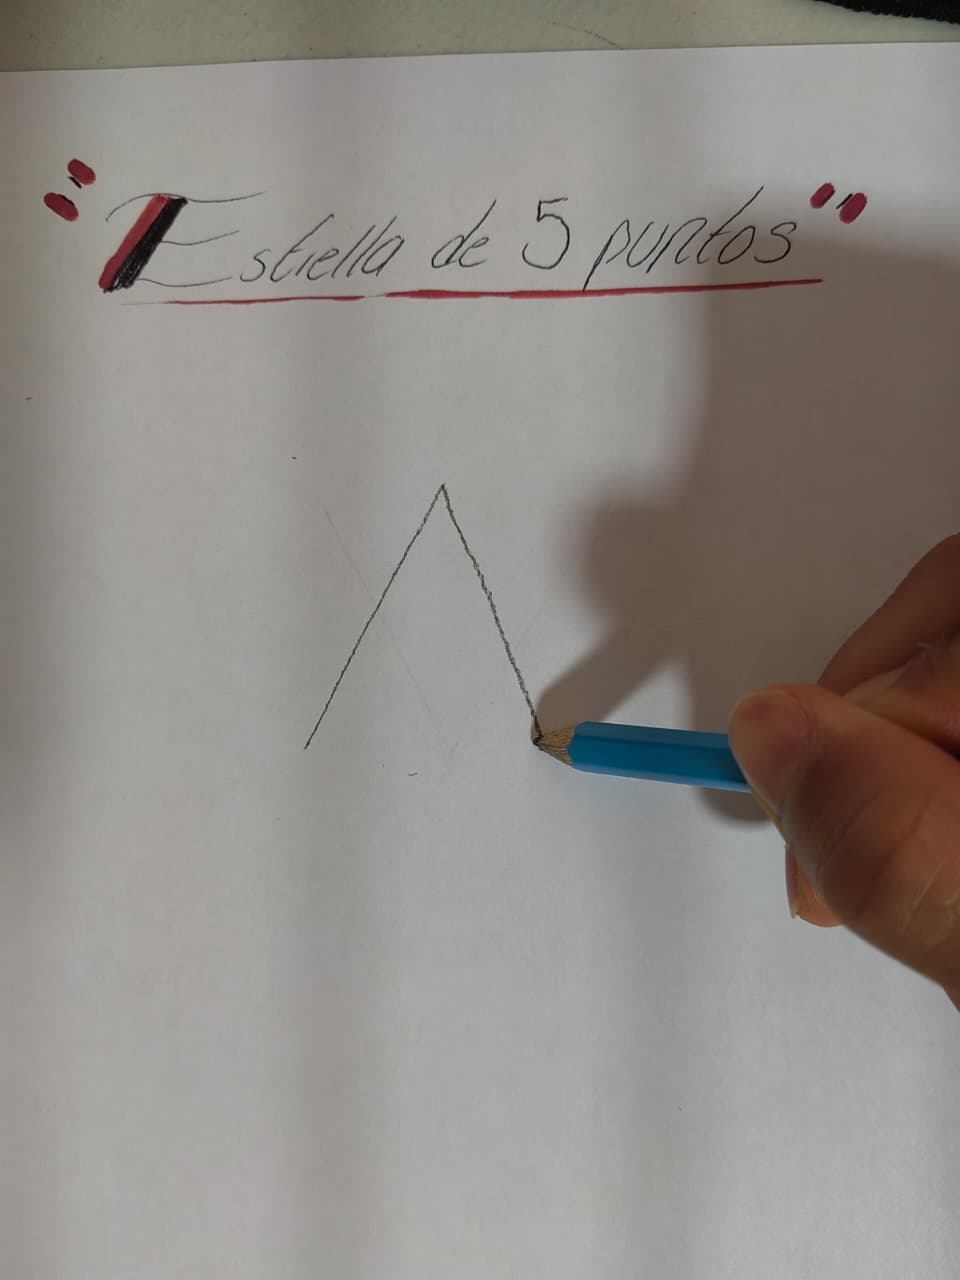 "Estrella de 5 puntos"